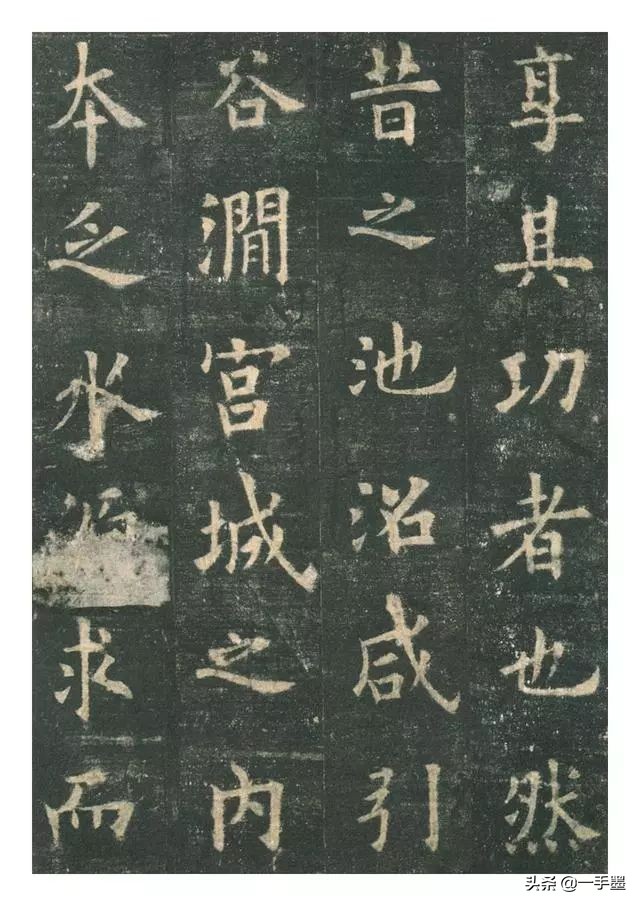 享其功者也然
昔之池沼咸引
谷澗宫城之内
本乏水源求而
头条 @一手墨